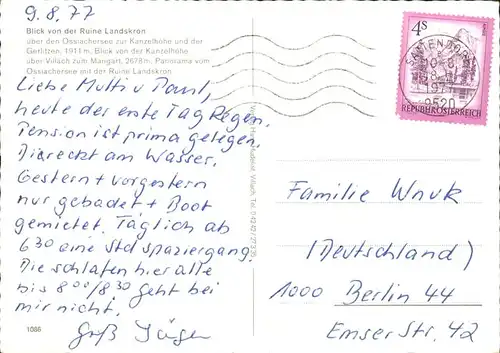 9.8.77
Blick von der Ruine Landskron
über den Ossiachersee zur Kanzelhöhe und der
Gerlitzen, 1911 m. Blick von der Kanzelhöhe
über Villach zum Mangart, 2678 m; Panorama vom
Ossiachersee mit der Ruine Landskron
Liebe Mutti u
heute der erste Tag Regen.
Pension ist prima gelegen.
Direckt am Wasser.
Gestern + vorgestern
nur gebadet + Boot
gemietet. Täglich ab
6 30 eine Std spaziergang.
Die schlafen hier alle
bis 8 00/8 30 geht bei
mir nicht.
Gruß Jürgen
1086
4S
REPUBLIK ÖSTERREICH
SATTENDORF
1977
9520
Familie Wnuk
(Deutschland)
1000 Berlin 44
Emser Str. 42